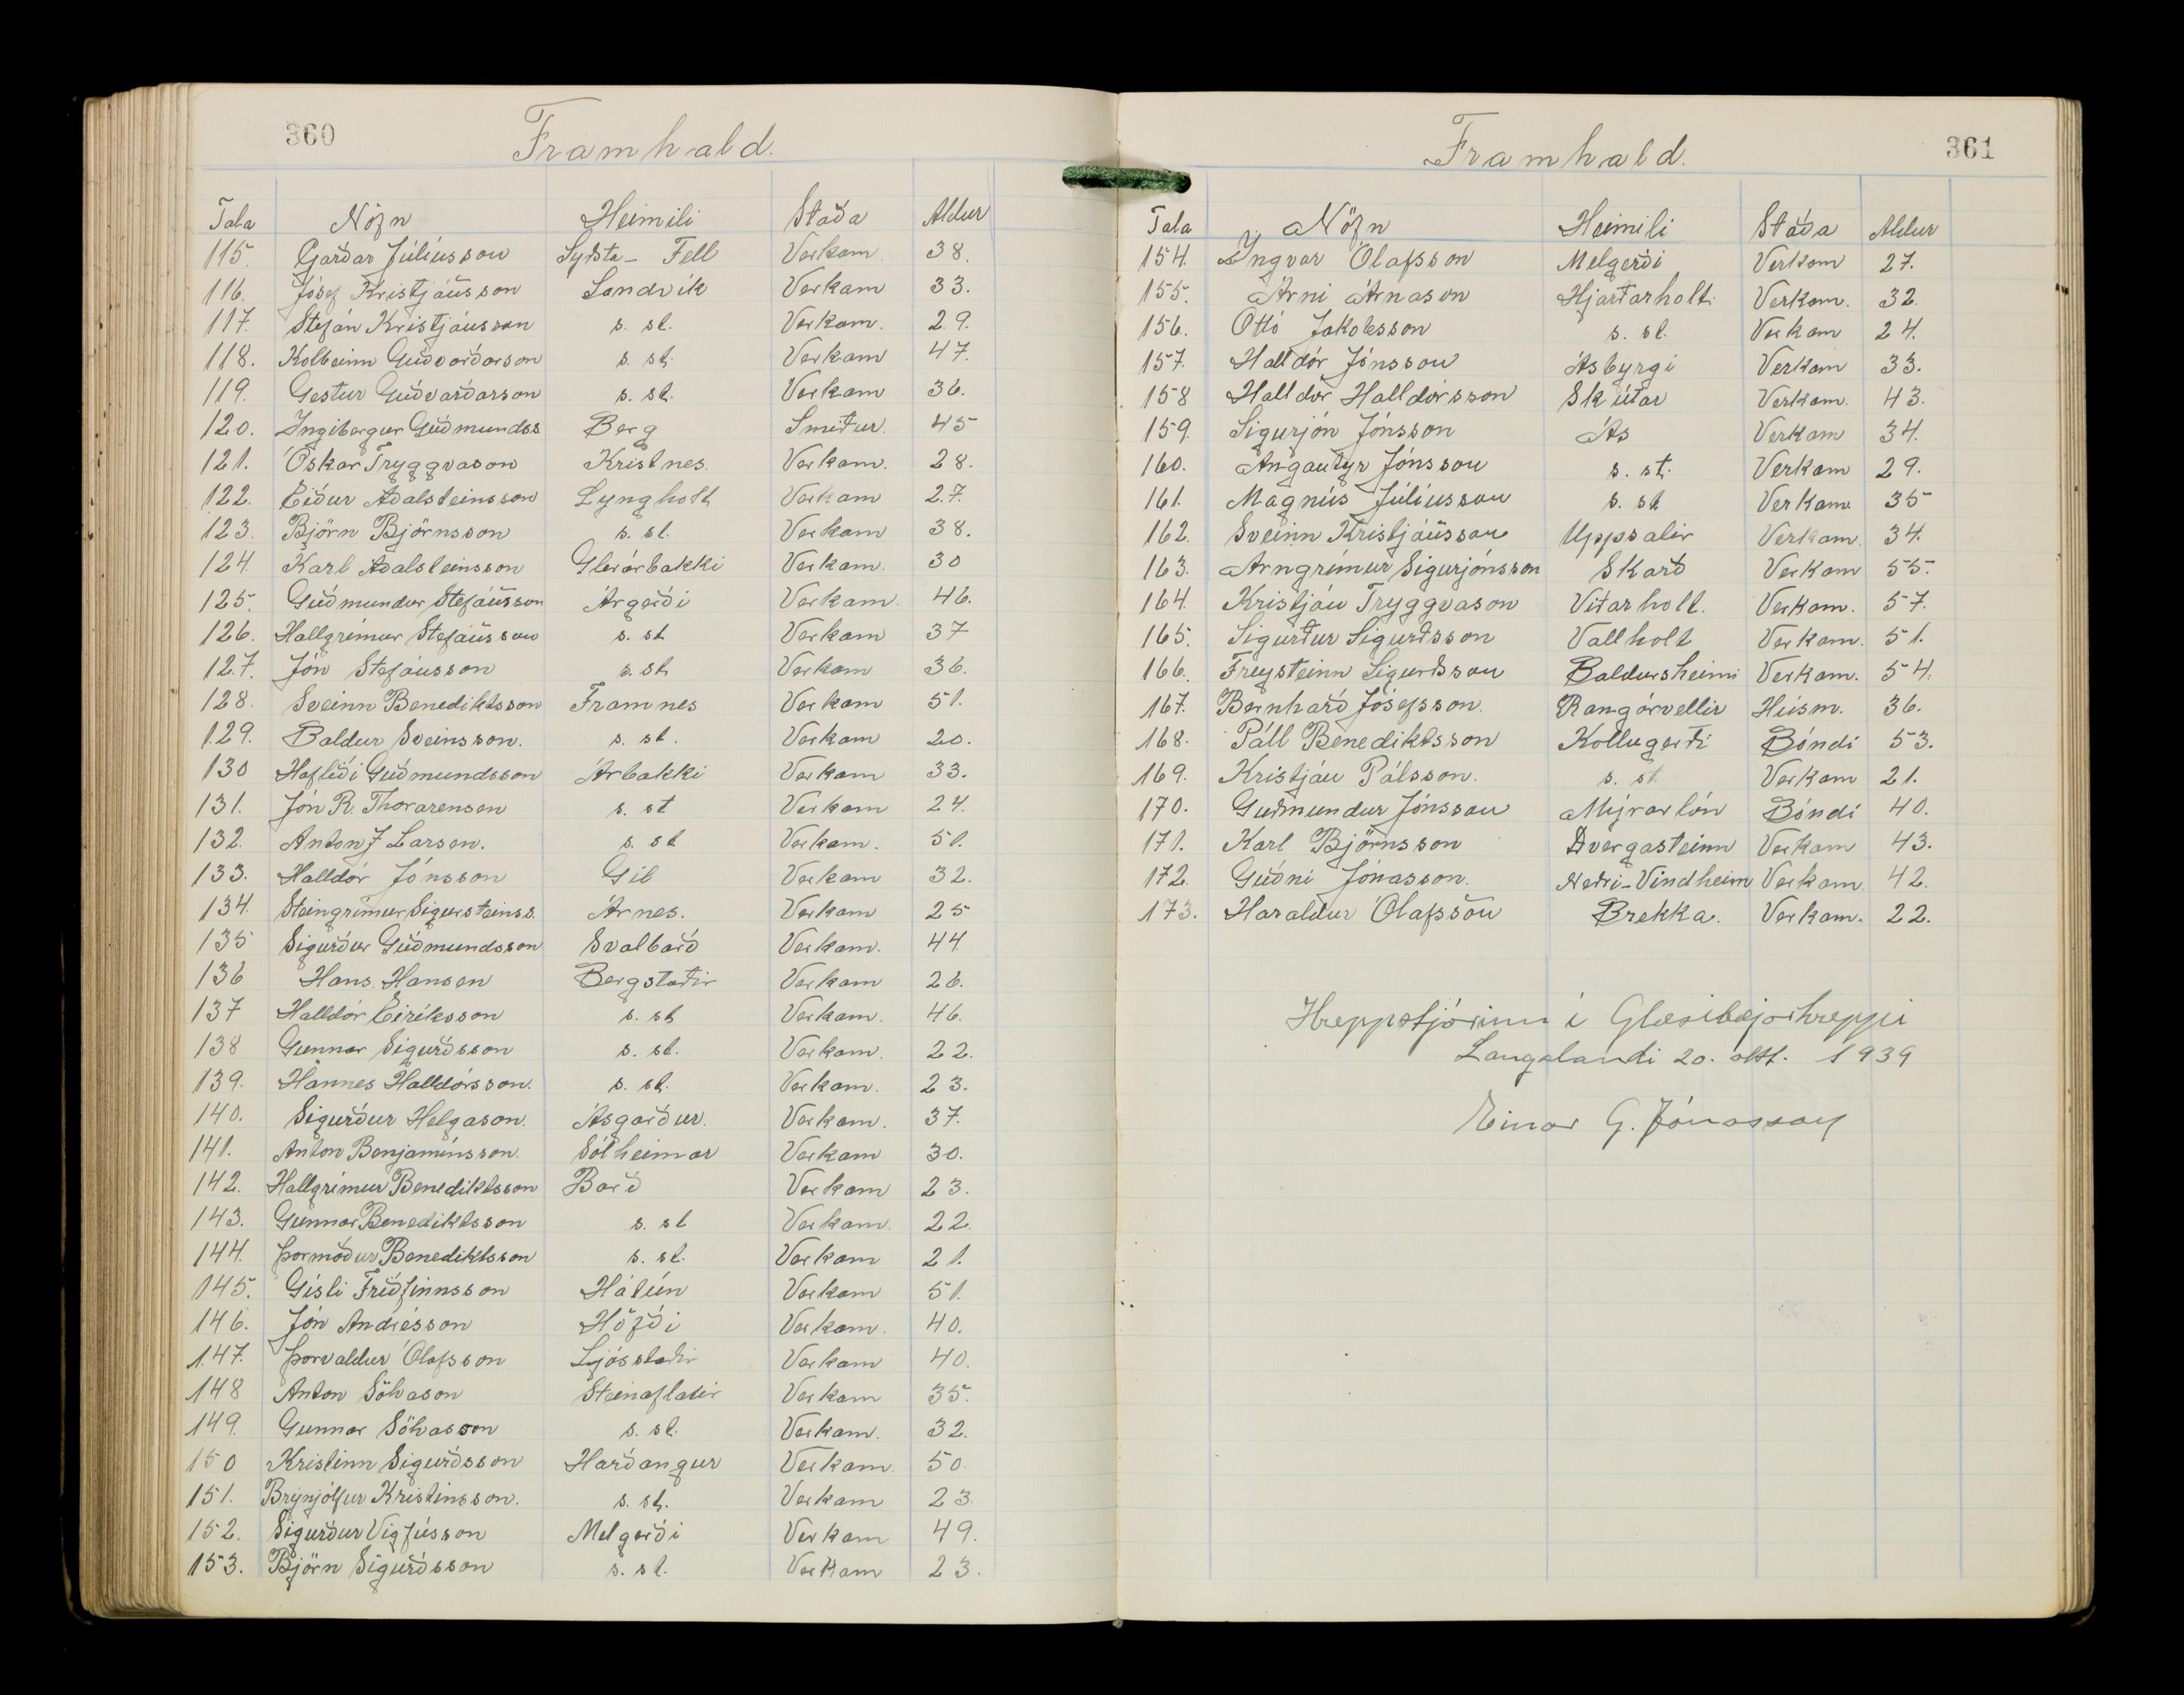 360
Framhald.
Tala Nöfn Heimili Staða Aldur
115. Garðar Júlíusson Syðsta-Fell Verkam. 38.
116. Jósef Kristjánsson Sandvík Verkam 33.
117. Stefán Kristjánsson s. st. Verkam. 29.
118. Kolbeinn Guðvarðarson s. st. Verkam 47.
119. Gestur Guðvarðarson s. st. Verkam 36.
120. Ingibergur Guðmundss. Berg Smiður. 45
121. Óskar Tryggvason Kristnes. Verkam. 28.
122. Eiður Aðalsteinsson Lyngholt Verkam 27.
123. Björn Björnsson s. st. Verkam 38.
124. Karl Aðalsteinsson Glerárbakki Verkam. 30
125. Guðmundur Stefánsson Árgerði Verkam. 46.
126. Hallgrímur Stefánsson s. st Verkam 37
127. Jón Stefánsson s. st. Verkam 36.
128. Sveinn Benediktsson Framnes Verkam 51.
129. Baldur Sveinsson. s. st. Verkam 20.
130 Hafliði Guðmundsson Árbakki Verkam 33.
131. Jón R. Thorarensen s. st Verkam 24.
132. Anton J Larsen. s. st Verkam. 51.
133. Halldór Jónsson Gil Verkam 32.
134. Steingrímur Sigursteinss. Árnes. Verkam 25
135 Sigurður Guðmundsson Svalbarð Verkam. 44.
136 Hans Hansen Bergstaðir Verkam 26.
137 Halldór Eiríksson s. st Verkam. 46.
138 Gunnar Sigurðsson s. st. Verkam. 22.
139. Hannes Halldórsson. s. st. Verkam. 23.
140. Sigurður Helgason. Ásgarður. Verkam. 37.
141. Anton Benjamínsson. Sólheimar Verkam 30.
142. Hallgrímur Benediktsson Barð Verkam 23.
143. Gunnar Benediktsson s. st Verkam. 22.
144. Þormóður Benediktsson s. st. Verkam 21.
145. Gísli Friðfinnsson Hátún Verkam 51.
146. Jón Andrésson Höfði Verkam. 40.
147. Þorvaldur Ólafsson Ljósstaðir Verkam 40.
148 Anton Sölvason Steinaflatir Verkam 35.
149. Gunnar Sölvason s. st. Verkam. 32.
150 Kristinn Sigurðsson Harðangur Verkam. 50.
151. Brynjólfur Kristinsson. s. st. Verkam 23.
152. Sigurður Vigfússon Melgerði Verkam 49.
153. Björn Sigurðsson s. st. Verkam 23.
361
Framhald.
Tala Nöfn Heimili Staða Aldur
154. Yngvar Ólafsson Melgerði Verkam 27.
155. Árni Árnason Hjarðarholt. Verkam. 32.
156. Ottó Jakobsson s. st. Verkam 24.
157. Halldór Jónsson Ásbyrgi Verkam 33.
158 Halldór Halldórsson Skútar Verkam. 43.
159. Sigurjón Jónsson Ás Verkam 34.
160. Angantýr Jónsson s. st. Verkam 29.
161. Magnús Júlíusson s. st Verkam. 35
162. Sveinn Kristjánsson Uppsalir Verkam. 34.
163. Arngrímur Sigurjónsson Skarð Verkam 55.
164. Kristján Tryggvason Viðarholt. Verkam. 57.
165. Sigurður Sigurðsson Vallholt Verkam. 51.
166. Freysteinn Sigurðsson Baldursheimi Verkam. 54.
167. Bernharð Jósefsson. Rangárvellir Húsm. 36.
168. Páll Benediktsson Kollugerði Bóndi 53.
169. Kristján Pálsson. s. st Verkam 21.
170. Guðmundur Jónsson Mýrarlón Bóndi 40.
171. Karl Björnsson Dvergasteinn Verkam 43.
172. Guðni Jónasson. Neðri-Vindheim Verkam. 42.
173. Haraldur Ólafsson Brekka. Verkam. 22.
Hreppstjórinn í Glæsibæjarhreppi
Laugalandi 20. okt. 1939
Einar G. Jónasson